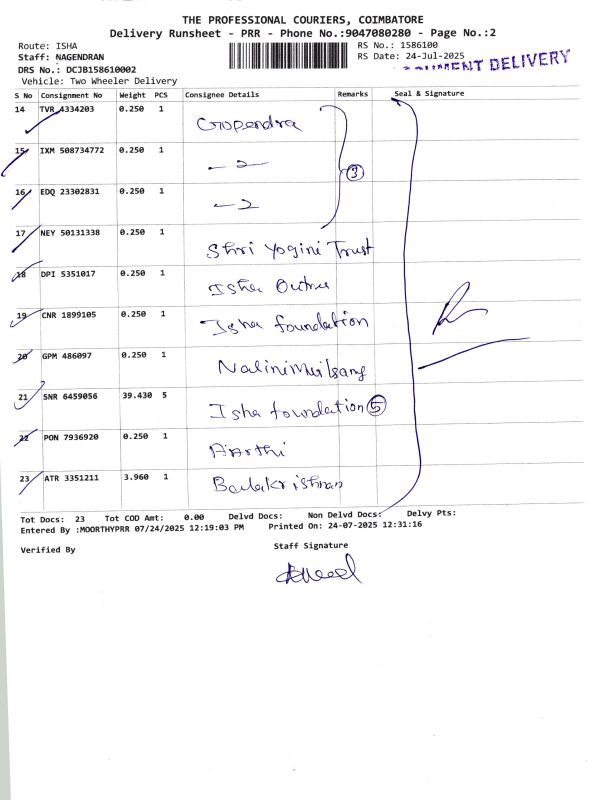 THE PROFESSIONAL COURIERS, COIMBATORE
Delivery Runsheet - PRR - Phone No.:9047080280 - Page No.:2
Route: ISHA
RS No.: 1586100
Staff: NAGENDRAN
RS Date: 24-Jul-2025
DRS No.: DCJB158610002
DELIVERY
Vehicle: Two Wheeler Delivery
S No Consignment No Weight PCS Consignee Details Remarks Seal & Signature
14 TVR 4334203 0.250 1 Gopendra
15 IXM 508734772 0.250 1
16 EDQ 23302831 0.250 1
3
17 NEY 50131338 0.250 1 Shri Yogini Trust
18 DPI 5351017 0.250 1 Isha
19 CNR 1899105 0.250 1 Isha foundation
20 GPM 486097 0.250 1
21 SNR 6459056 39.430 5 Isha foundation 5
22 PON 7936920 0.250 1
23 ATR 3351211 3.960 1 Balakrishnan
Tot Docs: 23 Tot COD Amt: 0.00 Delvd Docs: Non Delvd Docs: Delvy Pts:
Entered By :MOORTHYPRR 07/24/2025 12:19:03 PM Printed On: 24-07-2025 12:31:16
Verified By
Staff Signature